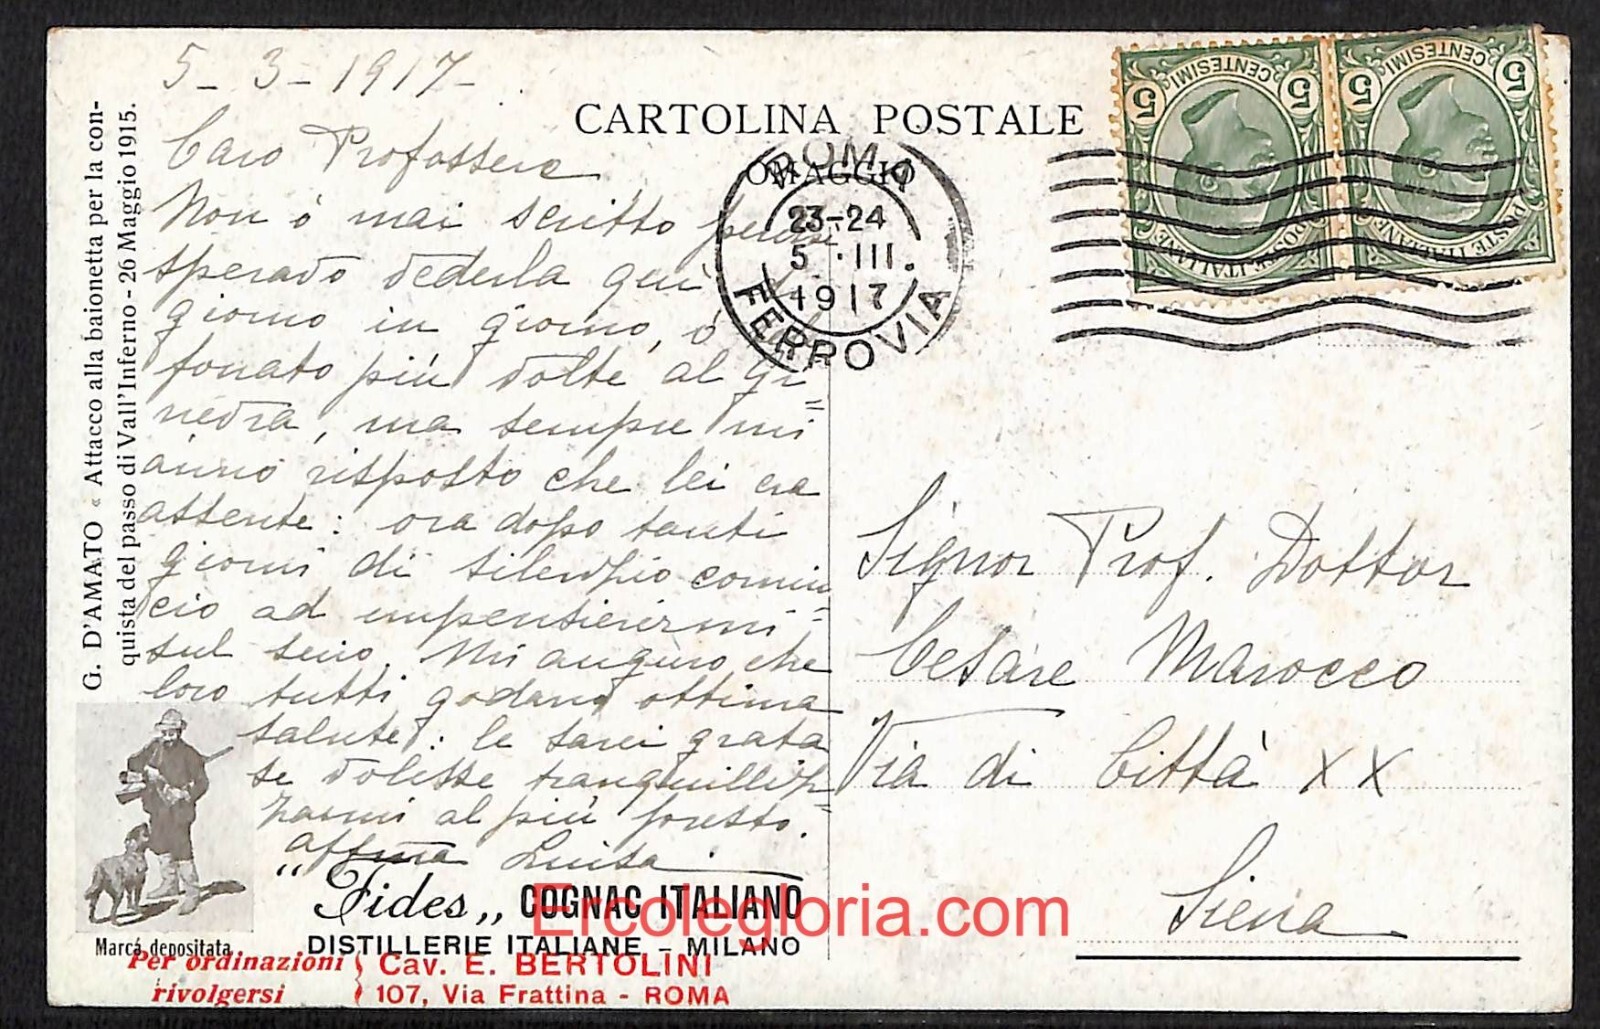 5-3-1917-
Caro Professore
Non ó mai scritto perché
speravo vederla qui
giorno in giorno, ó
fonato più volte al Gi
nevra, ma sempre mi
ánno risposto che lei era
assente: ora dopo tanti
giorni di silenzio comin
cio ad impensierirmi
sul serio. Mi auguro che
loro tutti godano ottima
salute: le sarei grata
se volesse tranquilliz=
zarmi al più presto.
affma Luisa
G. D'AMATO « Attacco alla baionetta per la con-
quista del passo di Vall'Inferno - 26 Maggio 1915.
CARTOLINA POSTALE
OMAGGIO
ROMA
23-24
5 · III.
1917
FERROVIA
5 CENTESIMI 5
POSTE ITALIANE
5 CENTESIMI 5
POSTE ITALIANE
Signor Prof. Dottor
Cesare Marocco
Via di Città XX
Siena
Marca depositata
"Fides„ COGNAC ITALIANO
DISTILLERIE ITALIANE - MILANO
Per ordinazioni
rivolgersi
Cav. E. BERTOLINI
107, Via Frattina - ROMA
Ercolegloria.com